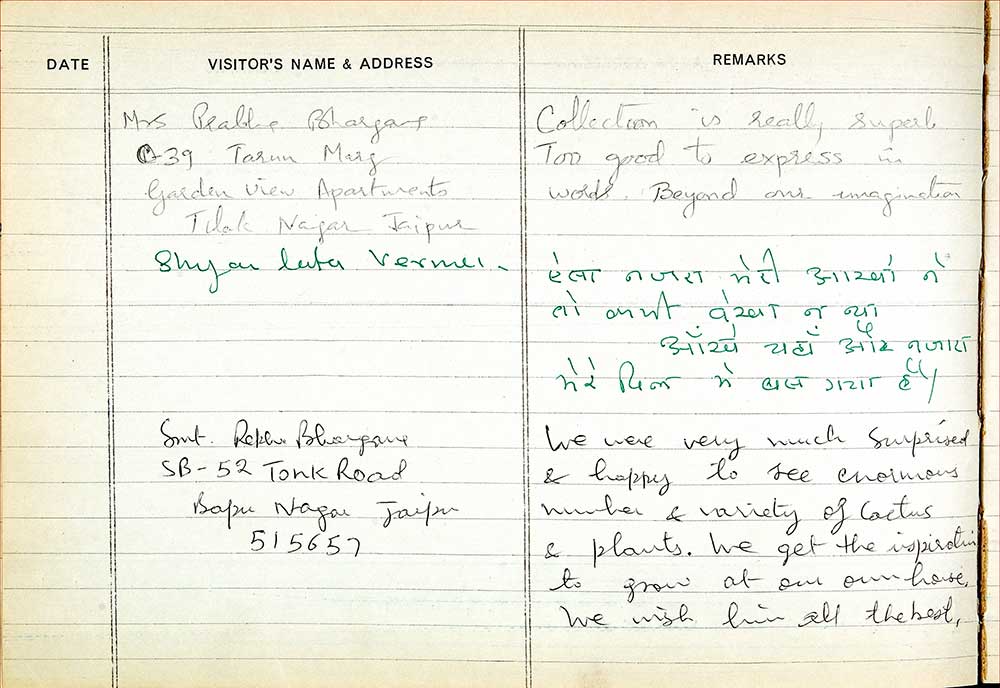 DATE
VISITOR'S NAME & ADDRESS
REMARKS
Mrs Prabha Bhargava
C-39 Tarun Marg
Garden view Apartments
Tilak Nagar Jaipur
Collection is really superb
Too good to express in
words. Beyond our imagination
Shyam lata Verma.
ऐसा नजारा मेरी आखों ने
तो कभी देखा न था
आँखें यहाँ और नजारा
मेरे दिल में बस गया है/
Smt. Rekha Bhargava
SB-52 Tonk Road
Bapu Nagar Jaipur
515657
We were very much Surprised
& happy to see enormous
number & variety of Cactus
& plants. We get the ispiration
to grow at our own house.
We wish him all the best,